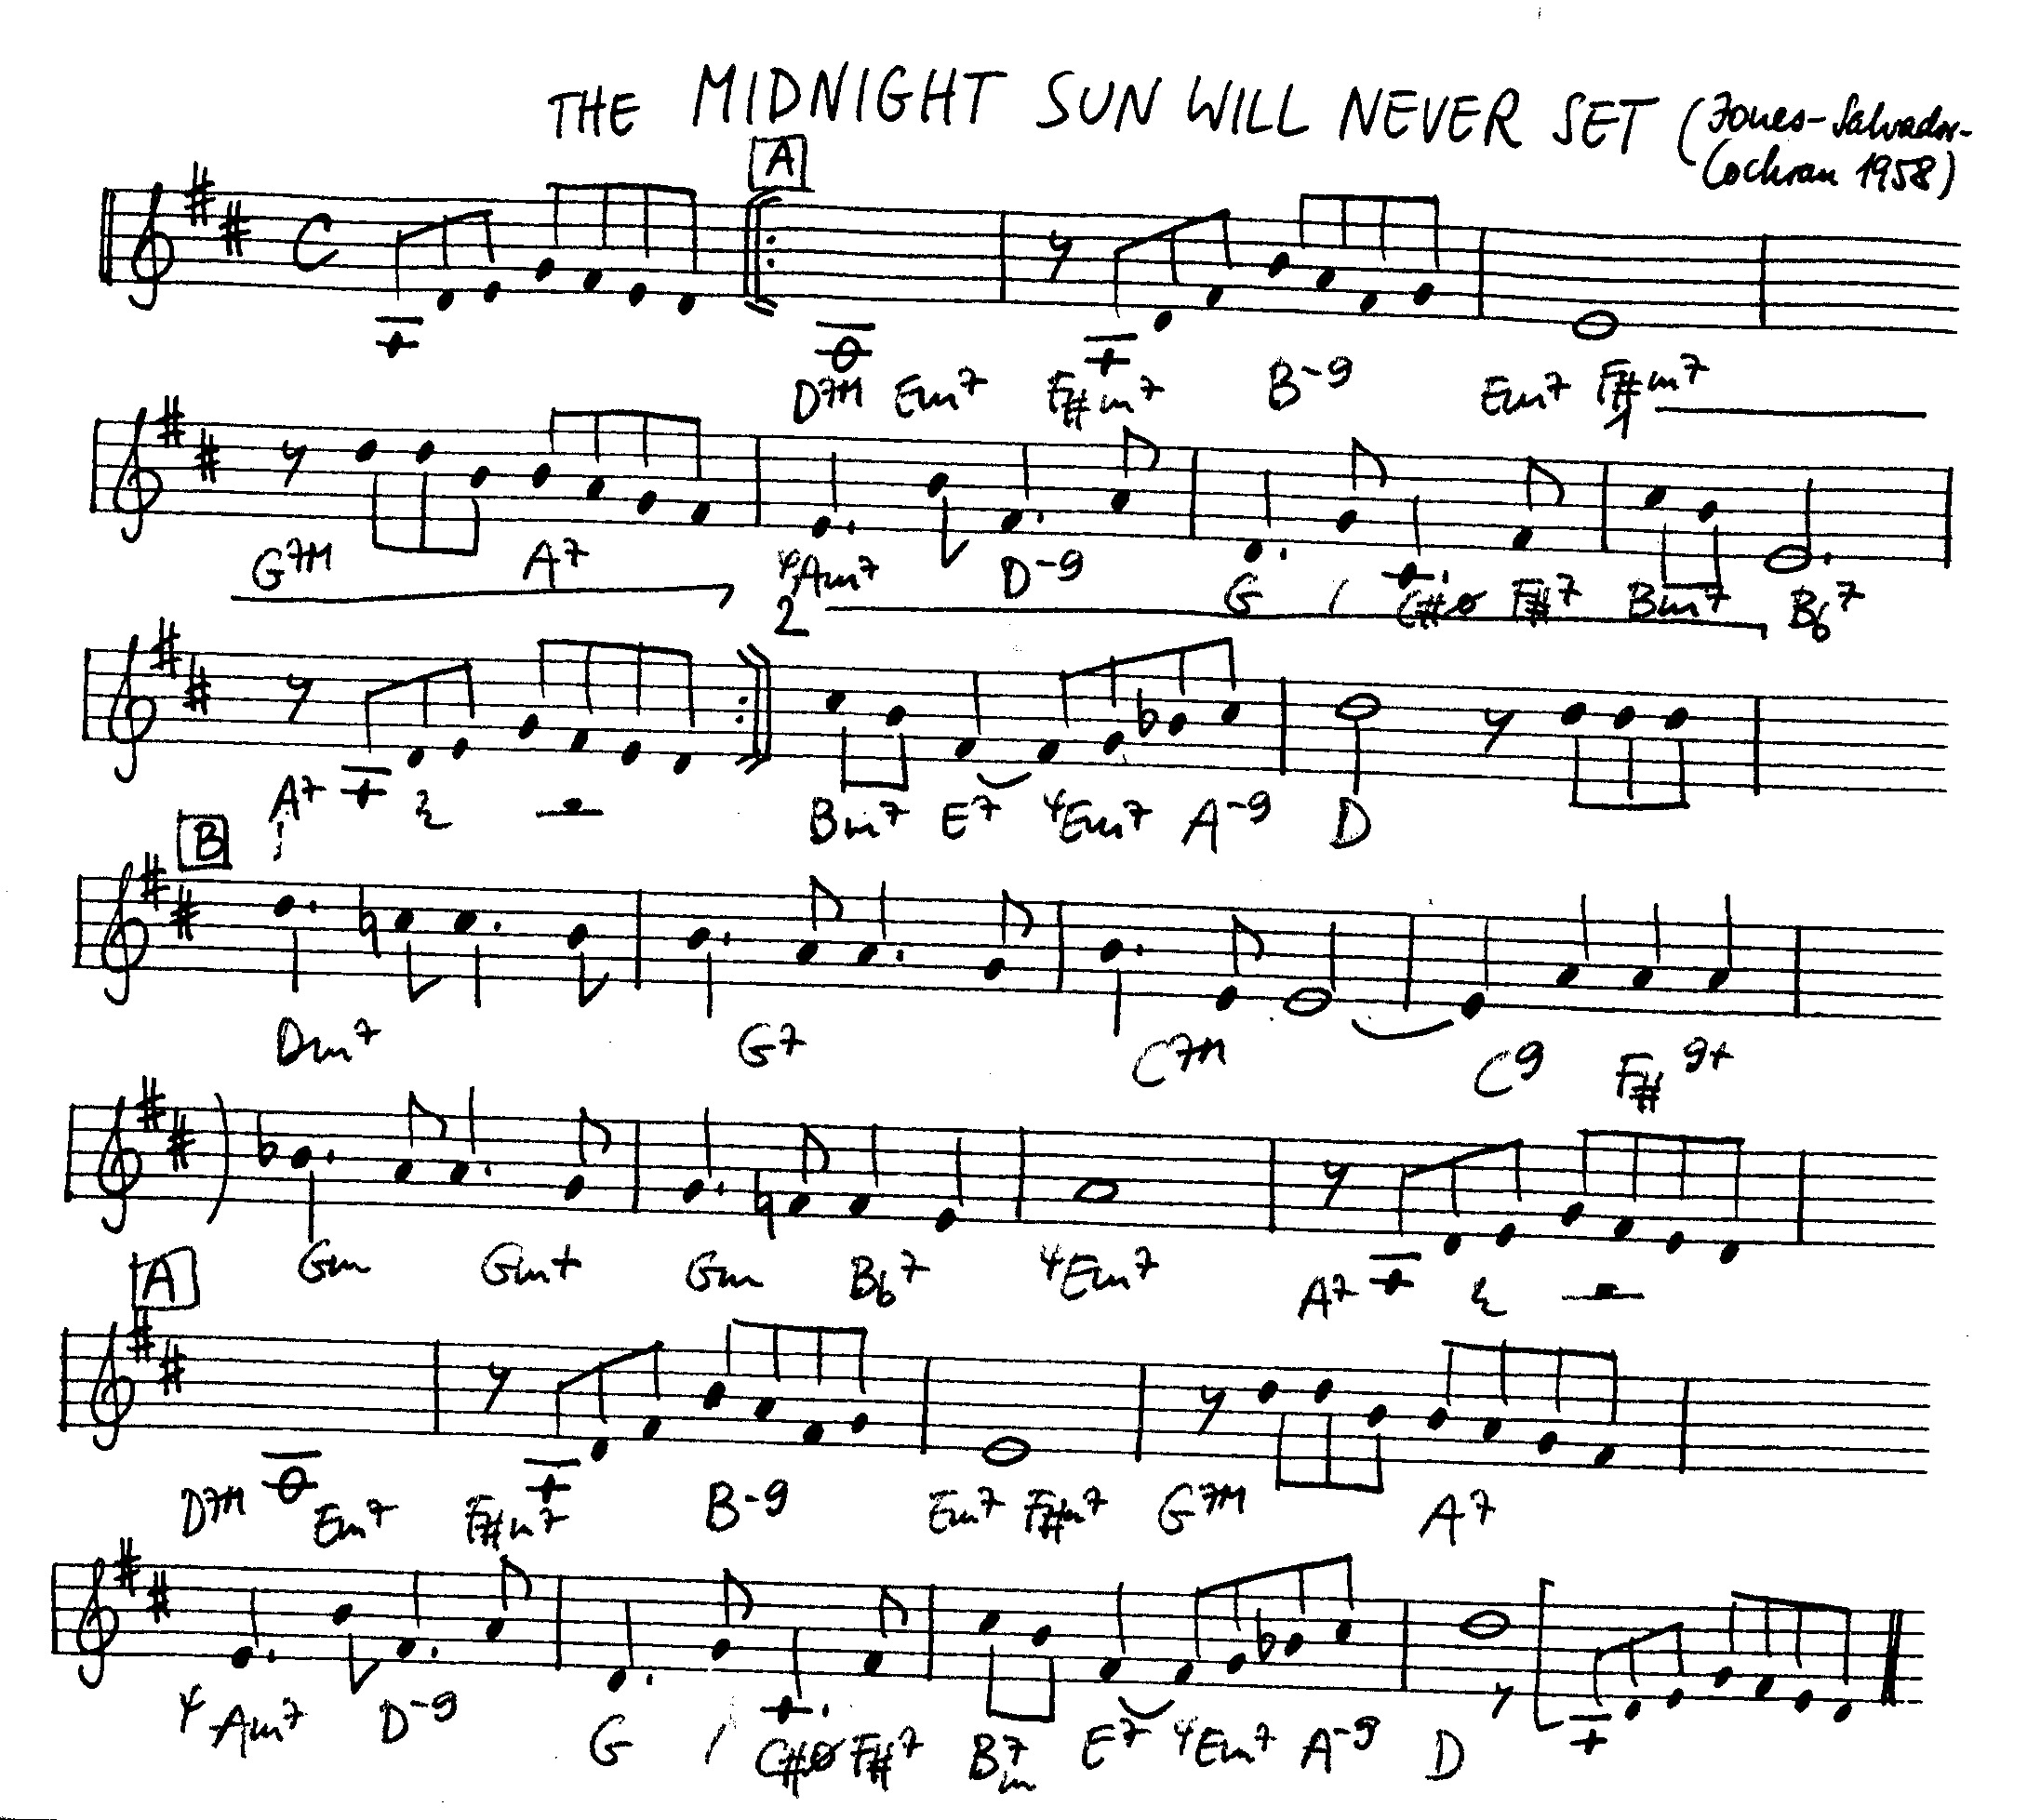 THE MIDNIGHT SUN WILL NEVER SET (Jones-Salvador-
Cochran 1958)
A
C
D7M Em7 F#m7 B-9 Em7 F#m7
1
G7M A7 Am7 D-9 G / C#ø F#7 Bm7 Bb7
2
A7 Bm7 E7 Em7 A-9 D
B
Dm7 G7 C7M C9 F#9+
Gm Gm+ Gm Bb7 Em7 A7
A
D7M Em7 F#m7 B-9 Em7 F#m7 G7M A7
Am7 D-9 G / C#ø F#7 Bm7 E7 Em7 A-9 D